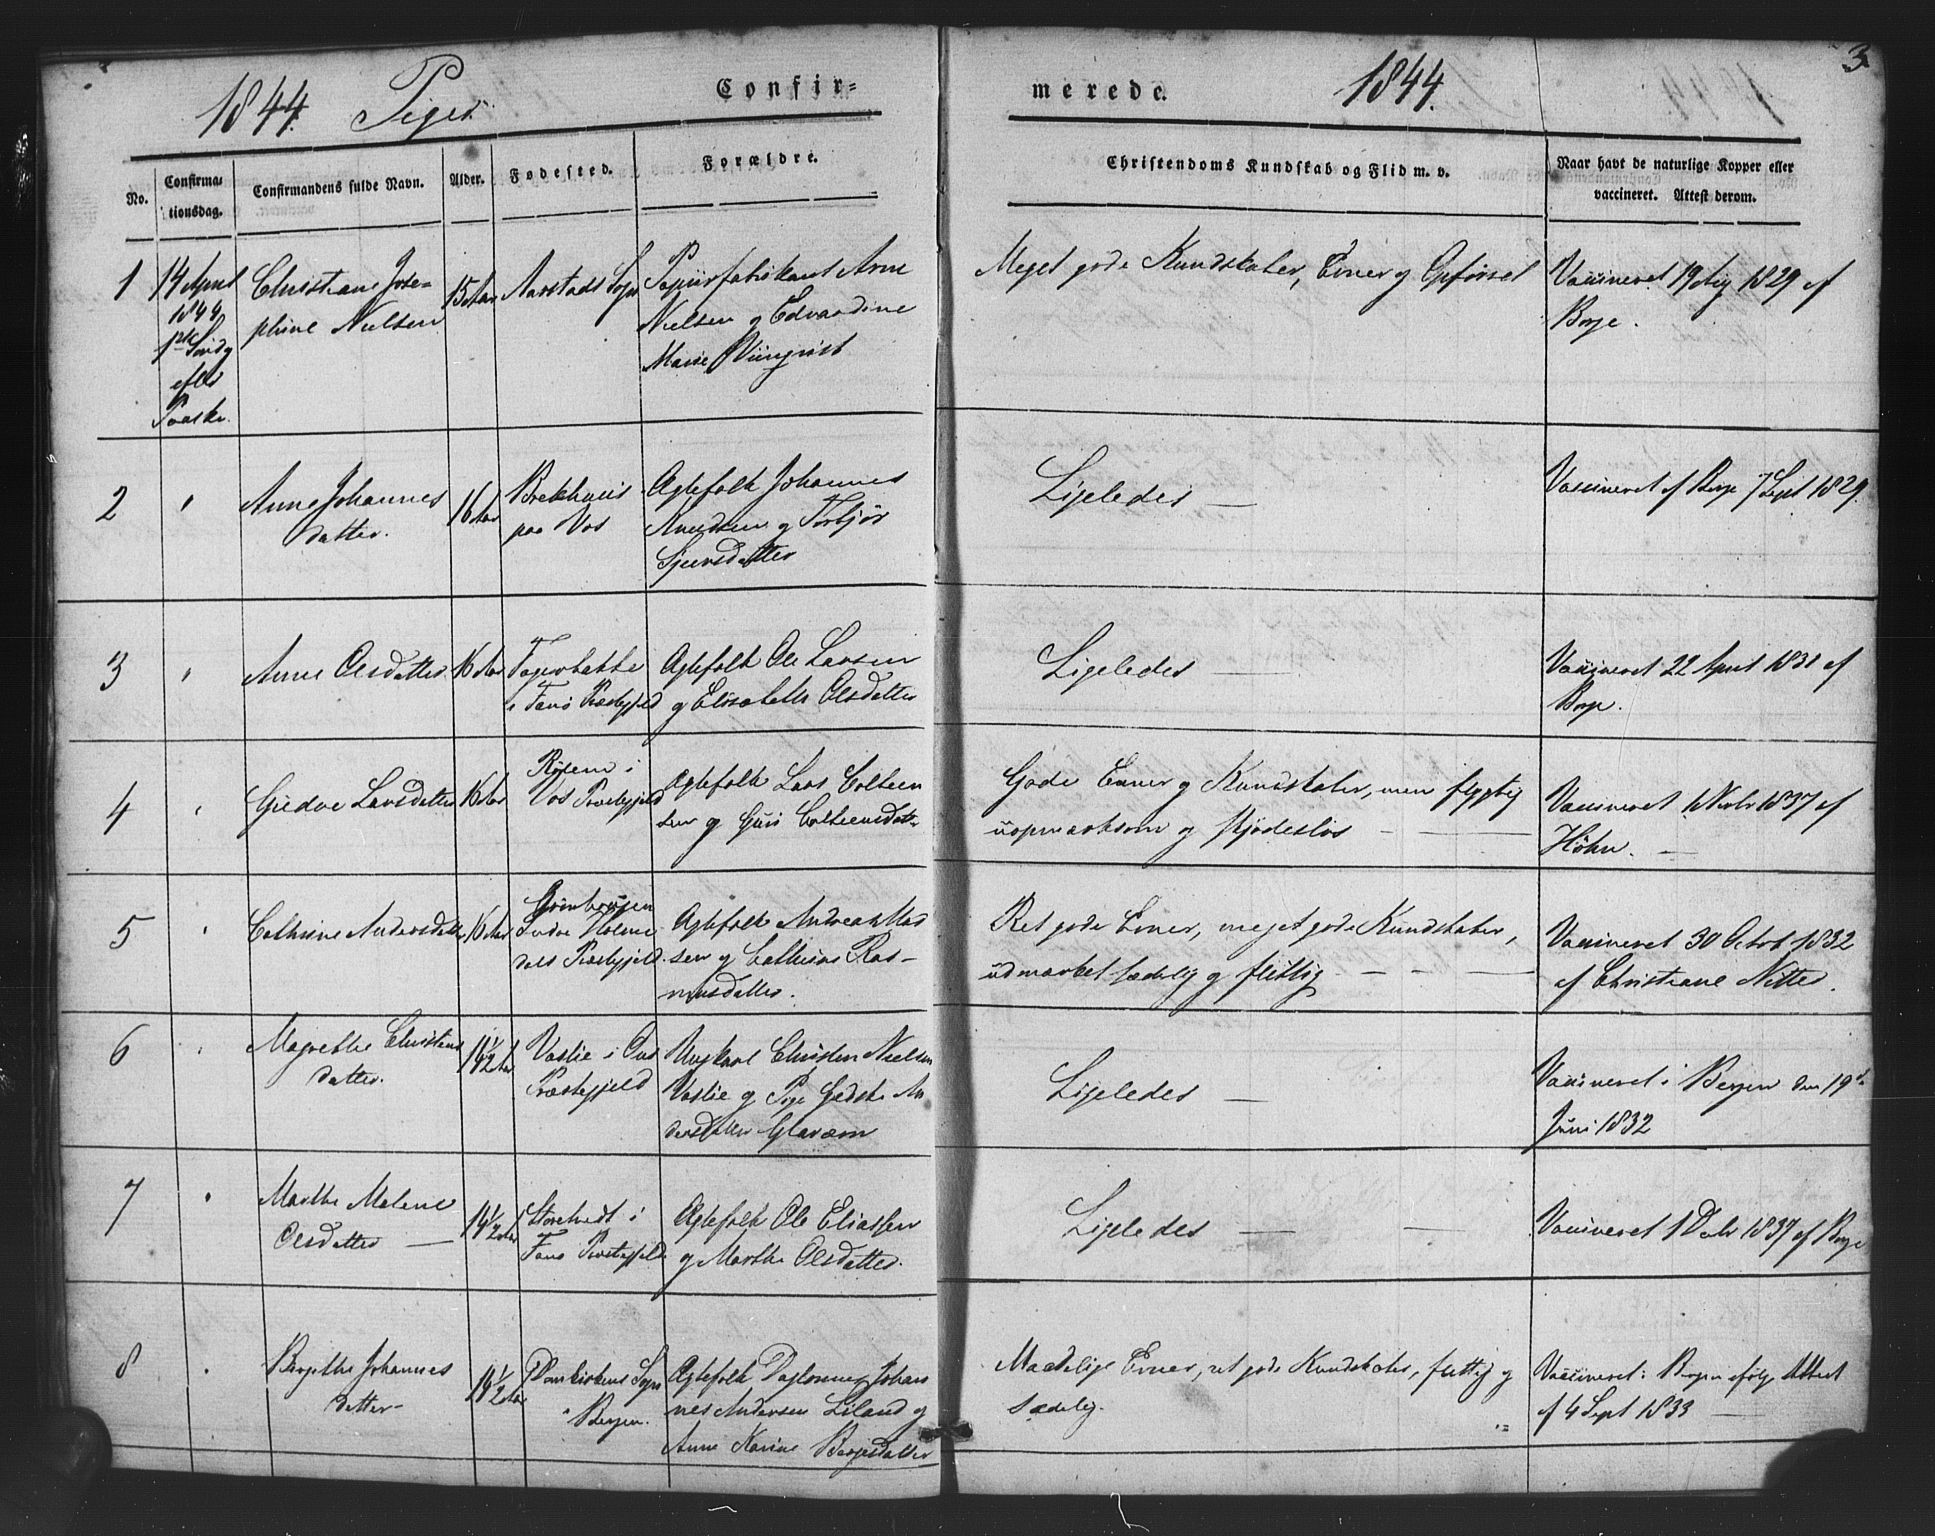 1844. Piger. Confir=
merede. 1844. 3
No.
Confirma=
tionsdag.
Confirmandens fulde Navn.
Alder.
Fødested.
Forældre.
Christendoms Kundskab og Flid m. v.
Naar havt de naturlige Kopper eller
vaccineret. Attest derom.
1
14 April
1844
1ste Søndg
efter
Paaske.
Christiane Jose-
phine Nielsen
15 Aar
Aarstads Sogn
Papiirfabrikant Arne
Nielsen og Edvardine
Marie
Meget gode Kundskaber, Evner og Opførsel
Vaccineret 19 Aug 1829 af
Borge.
2
"
Anne Johannes
datter.
16 Aar
Brekhuus
paa Vos
Agtefolk Johannes
Knudsen og Torbjør
Sjursdatter
Ligeledes —
Vaccineret af Borge 7 Sept 1829
3
"
Anne Olsdatter
16 Aar
Fagerbakke
i Fanø Præstegjeld
Agtefolk Ole Larsen
og Elisabeth Olsdatter
Ligeledes —
Vaccineret 22 April 1831 af
Borge.
4
"
Giedve Larsdatter
16 Aar
i
Vos Præstegjeld
Agtefolk Lars Colbeen
sen og Guri Colbeensdat-
Gode Evner og Kundskaber, men flygtig
uopmærksom og skjødesløs — —
Vaccineret 1 Novbr 1837 af
Høhn. —
5
"
Cathrine Andersdatter
16 Aar
Indre Holme
dals Præstegjeld.
Agtefolk Andreas Mad
sen og Cathrine Ras-
musdatter.
Ret gode Evner, meget gode Kundskaber,
udmærket sædelig og flittig — — —
Vaccineret 30 Octob 1832
af Christiane Nitter.
6
"
Magrethe Christens
datter.
14 1/2 Aar
Vaslie i Ous
Præstegjeld
Ungkarl Christen Nielsen
Vaslie og Pige Gedske An
dersdatter Glaræm
Ligeledes —
Vaccineret i Bergen den 19de
Juni 1832
7
"
Marthe Malene
Olsdatter —
14 1/2 Aar
Storetvedt i
Fanø Præstegjeld
Agtefolk Ole Eliassen
og Marthe Olsdatter.
Ligeledes — —
Vaccineret 1 Debr 1837 af Borge
8
"
Bergithe Johannes
datter-
14 1/2 Aar
Domkirkens Sogn
i Bergen.
Agtefolk Daglønner Johan
nes Andersen Liland og
Anne Karine Børgesdatter
Maadelige Evner, ret gode Kundskaber, flittig og
sædelig.
Vaccineret i Bergen ifølge Attest
af 4 Sept 1833 —